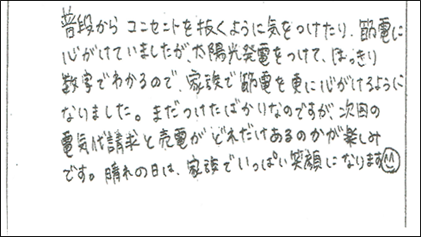 普段からコンセントを抜くように気をつけたり、節電に
心がけていましたが、太陽光発電をつけて、はっきり
数字でわかるので、家族で節電を更に心がけるように
なりました。まだつけたばかりなのですが、次回の
電気代請求と売電がどれだけあるのかが楽しみ
です。晴れの日は、家族でいっぱい笑顔になります